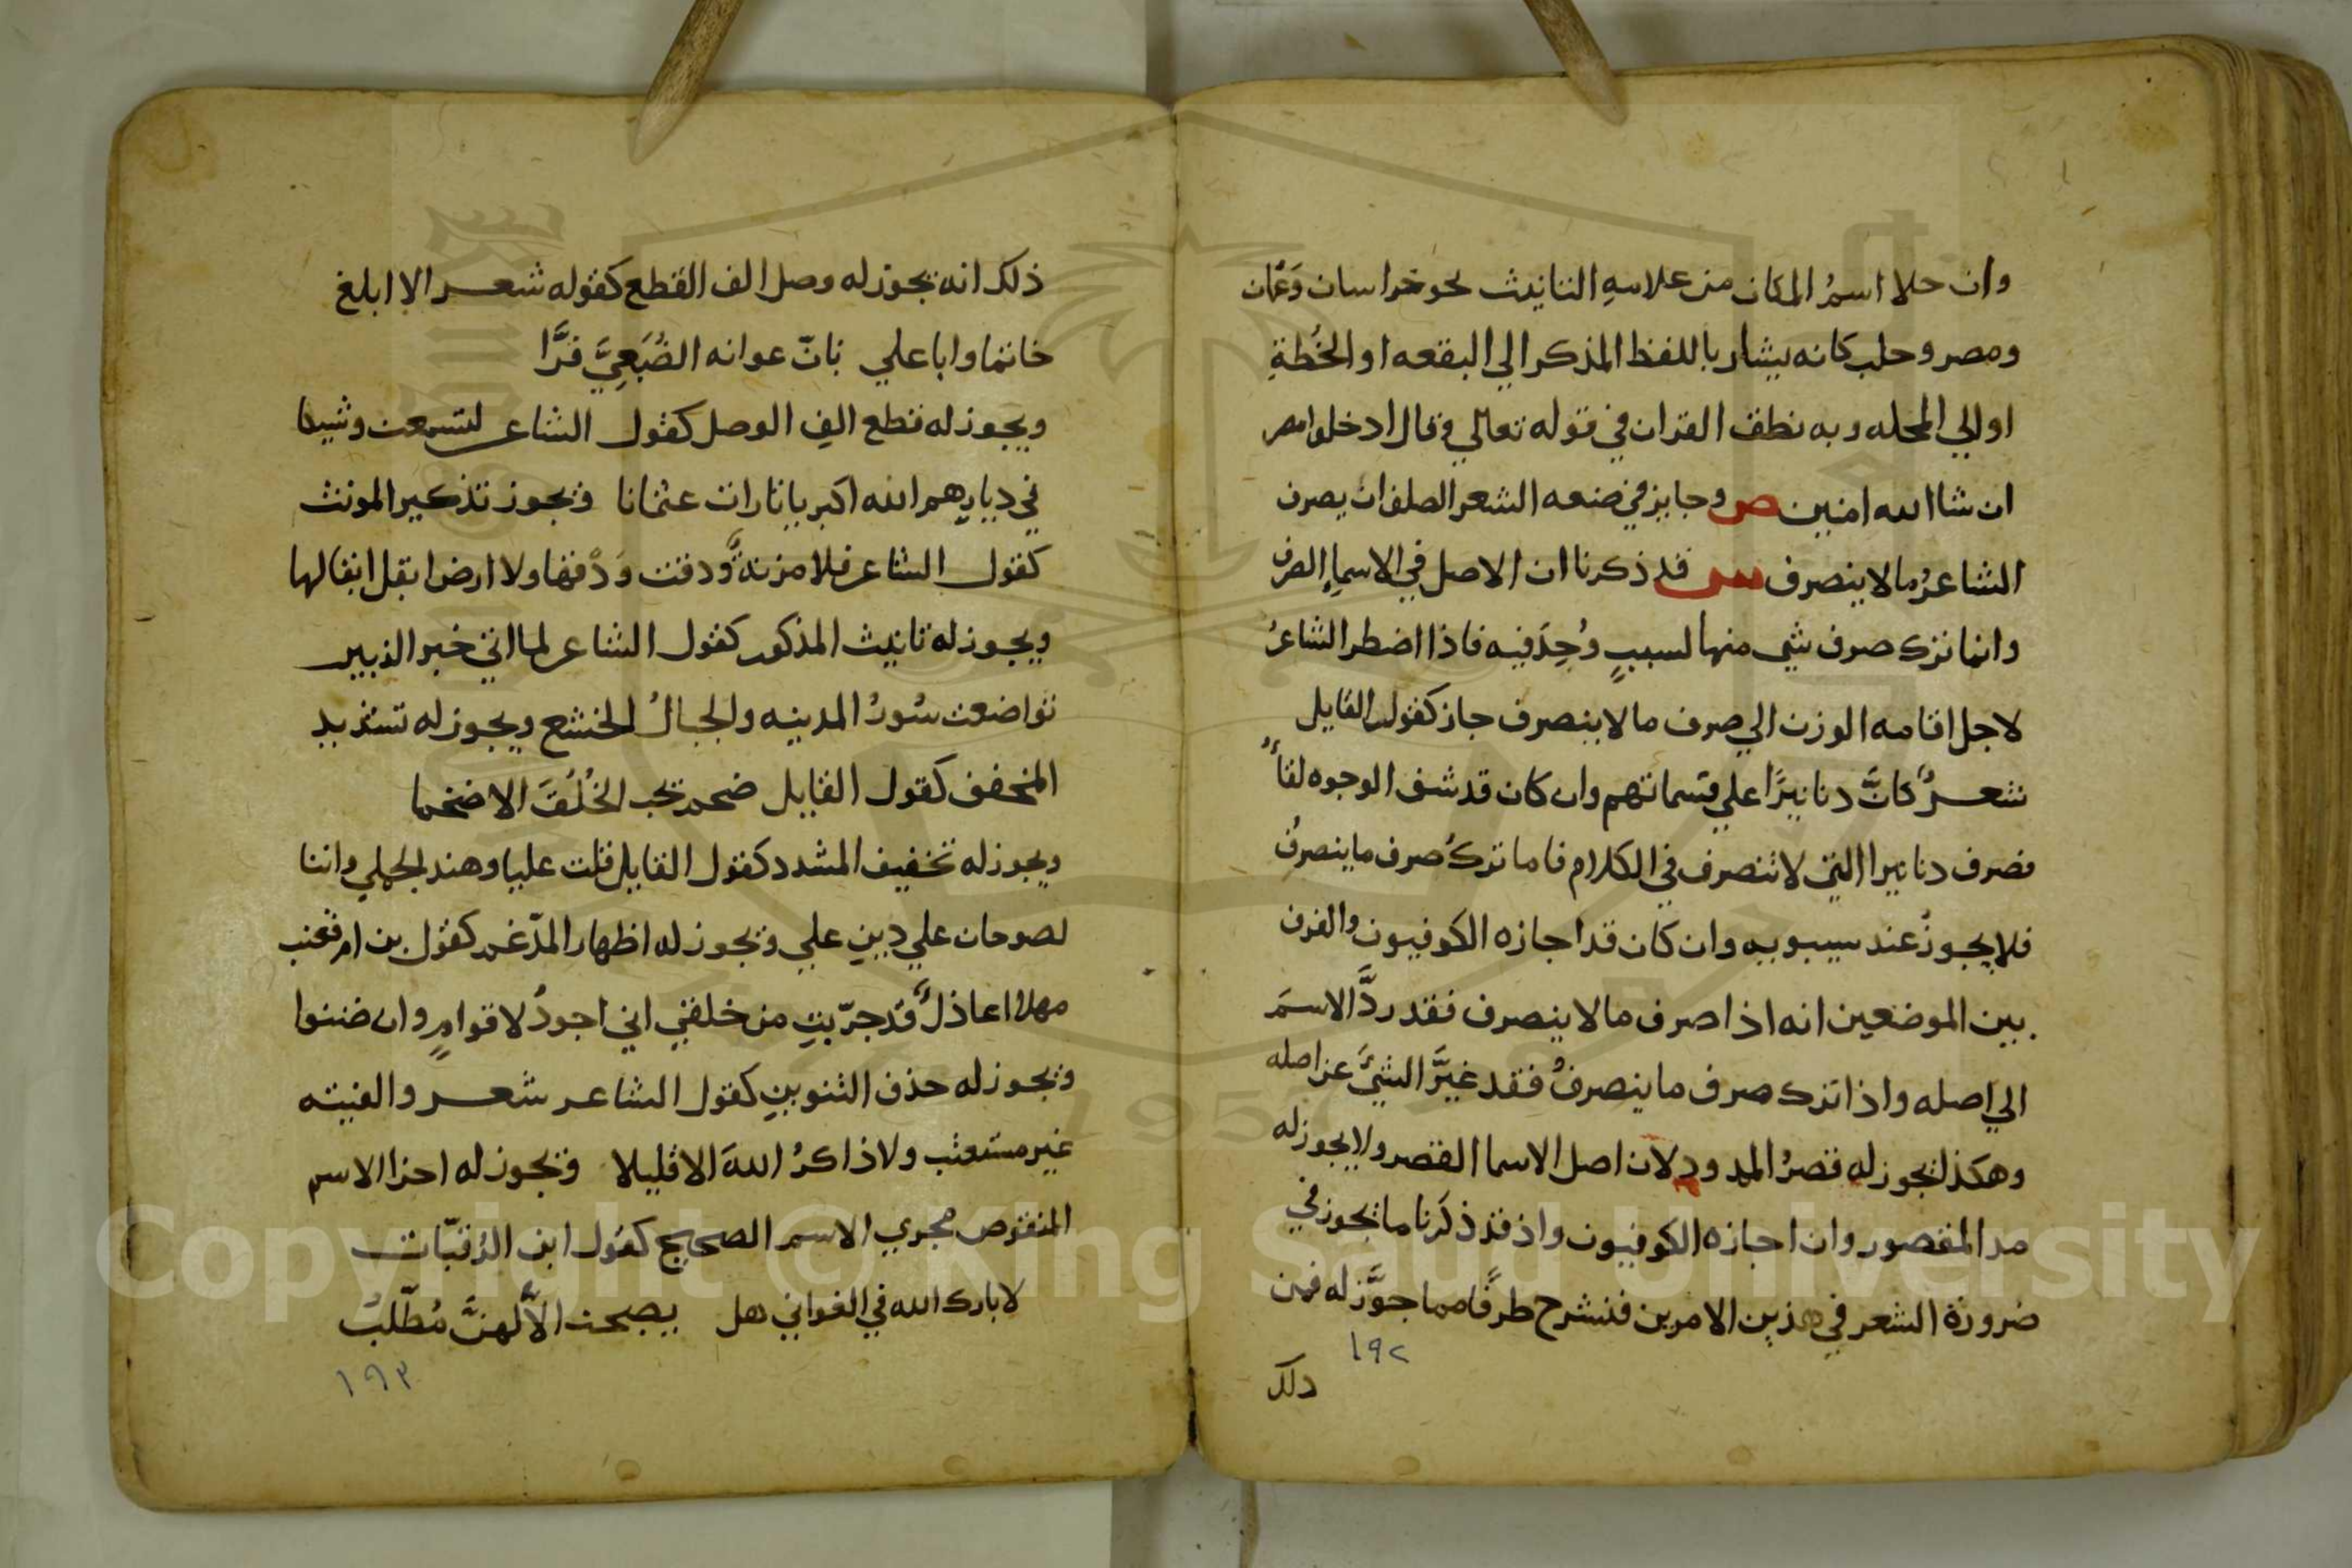 وان خلا اسمُ المكان من علامةِ التانيث نحو خراسان وَعُمان
ومصر وحلب كانه يشار باللفظ المذكر الي البقعه او الخُطةِ
او الي المحله وبه نطق القران في قوله تعالي وقال ادخلوا مصر
ان شا الله امنين ص وجايز في صنعه الشعر الصلف ان يصرف
الشاعرُ ما لا ينصرف س قد ذكرنا ان الاصل في الاسماءِ الصرف
وانما ترك صرف شي منها لسببٍ وُجِدَ فيه فاذا اضطر الشاعرُ
لاجل اقامه الوزن الي صرف ما لا ينصرف جاز كقول القايل
شعــرٌ كانَّ دنانيرًا علي قسماتهم وان كان قد شف الوجوه لقاءُ
فصرف دنانيرا التي لا تنصرف في الكلام فاما تركُ صرف ما ينصرفُ
فلا يجوزُ عند سيبويه وان كان قد اجازه الكوفيون والفرق
بين الموضعين انه اذا صرف ما لا ينصرف فقد ردَّ الاسمَ
الي اصله واذا ترك صرف ما ينصرفُ فقد غيَّرَ الشيَّ عن اصله
وهكذا يجوز له قصرُ الممدود لان اصل الاسما القصر ولا يجوز له
مد المقصور وان اجازه الكوفيون واذ قد ذكرنا ما يجوز في
ضرورة الشعر في هذين الامرين فنشرح طرفًا مما جوَّز له فمن
١٩٢
ذلك
ذلك انه يجوز له وصل الف القطع كقوله شعــر الا ابلغ
حاتما وابا علي بانّ عوانه الضُبَعِيَّ فرَّا
ويجوز له قطع الفِ الوصل كقول الشاعر لتسمعن وشيكا
في ديارهم الله اكبر يا ثارات عثمانا ويجوز تذكير المونث
كقول الشاعر فلا مزنةٌ ودقت وَدْقها ولا ارض ابقل ابقالها
ويجوز له تانيث المذكور كقول الشاعر لما اتي خبر الزبير
تواضعت سُورُ المدينه والجبالُ الخشع ويجوز له تشديد
المخفف كقول القايل ضخم يحب الخُلُقَ الاضخما
ويجوز له تخفيف المشدد كقول القايل قتلت عليا وهند الجملي وابنا
لصوحان علي دينِ علي ويجوز له اظهار المدّغم كقول بن ام قعنب
مهلا اعاذلُ قد جرّبتِ من خلقي اني اجودُ لاقوامٍ وان ضننوا
ويجوز له حذف التنوينِ كقول الشاعر شعــر والفيته
غير مستعتب ولا ذاكرُ اللهَ الا قليلا ويجوز له اجرا الاسم
المنقوص مجري الاسم الصحيح كقول ابن الرُقيّات
لا بارك الله في الغواني هل يصبحن الاَّ لهنَّ مُطّلبُ
١٩٣
Copyright © King Saud University
1957